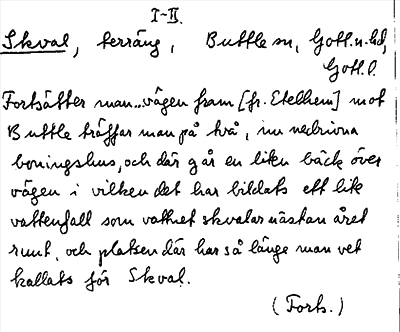 I-II.
Skval, terräng, Buttle sn, Gotl.n.hd,
Gotl.l.
Fortsätter man...vägen fram [fr. Etelhem] mot
Buttle träffar man på två, nu nedrivna
boningshus, och där går en liten bäck över
vägen i vilken det har bildats ett lite
vattenfall som vattnet skvalar nästan året
runt, och platsen där har så länge man vet
kallats för Skval.
(Forts.)